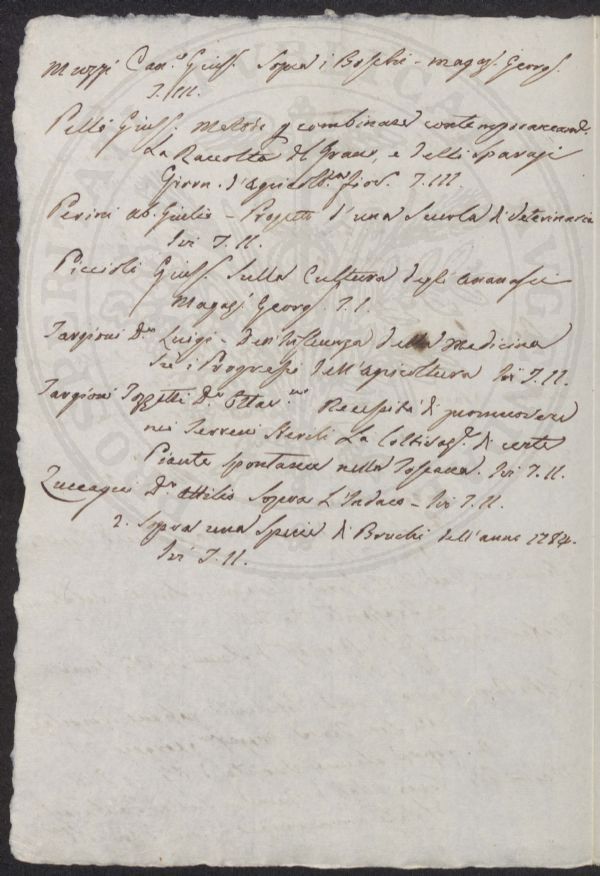 Muzzi Can.º Gius. Sopra i Boschi - Magaz. Georg.
T. III.
Pelli Gius. Metodo p combinare contemporaneam.
La Raccolta del Grano, e delli Sparagi
Giorn. d'Agricolt. fior. T. III.
Perini ab. Giulio - Progetto d'una Scuola di Veterinaria
Ivi T. II.
Piccioli Gius. Sulla Cultura degli Ananassi
Magaz. Georg. T. I.
Targioni Dr. Luigi - Dell'Influenza della Medicina
Su i Progressi dell'Agricoltura Ivi T. II.
Targioni Tozzetti Dr. Ottav.no Necessità di promuovere
nei Terreni Sterili La Coltivaz. di certe
Piante Spontanee nella Toscana. Ivi T. II.
Zuccagni Dr. Attilio Sopra L'Indaco - Ivi T. II.
2. Sopra una Specie di Bruchi dell'anno 1784.
Ivi T. II.